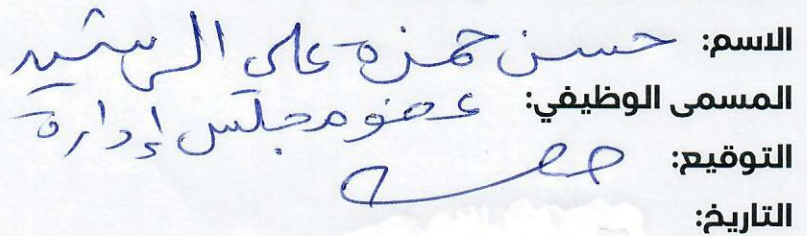 الاسم: حسن حمزة علي الرشيد
المسمى الوظيفي: عضو مجلس إدارة
التوقيع:
التاريخ: